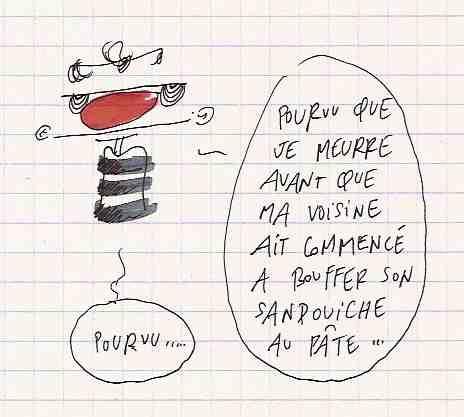 POURVU QUE
JE MEURRE
AVANT QUE
MA VOISINE
AIT COMMENCÉ
A BOUFFER SON
SANDOUICHE
AU PÂTE ...
POURVU.....